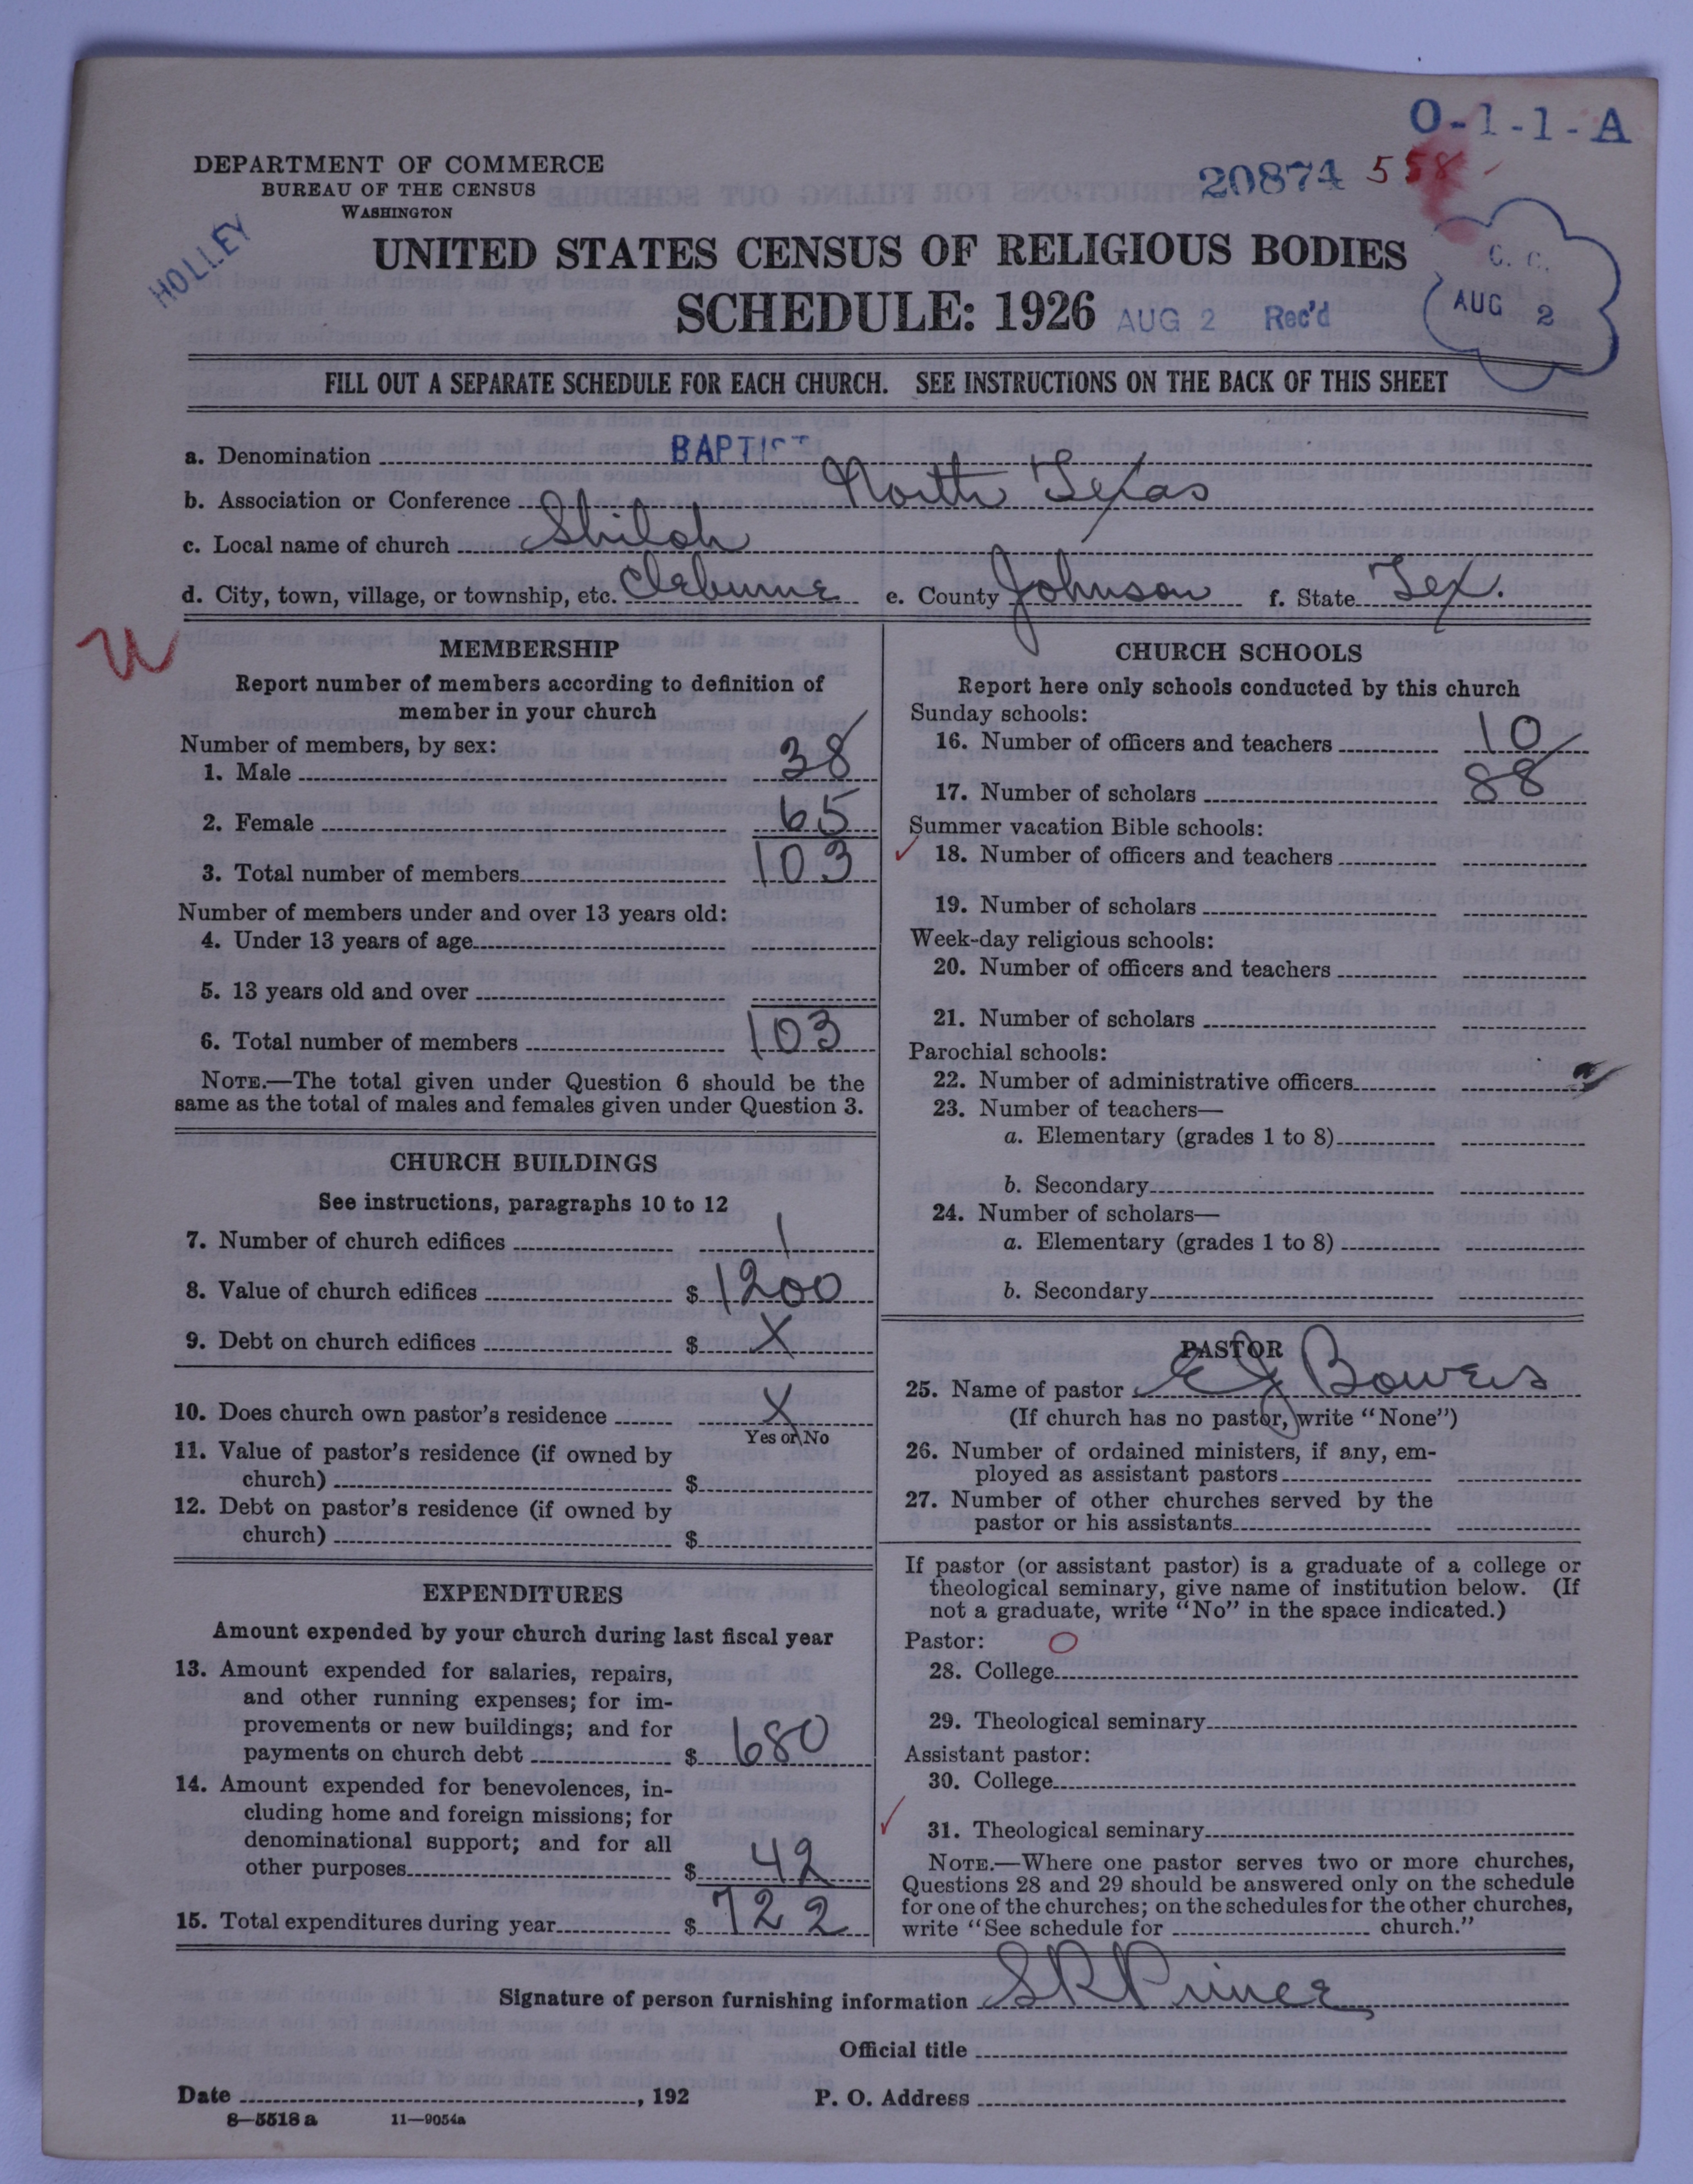 O-1-1-A
DEPARTMENT OF COMMERCE
BUREAU OF THE CENSUS
WASHINGTON
20874 558
HOLLEY
UNITED STATES CENSUS OF RELIGIOUS BODIES
C. C.
SCHEDULE: 1926 AUG 2 Rec'd
AUG 2
FILL OUT A SEPARATE SCHEDULE FOR EACH CHURCH. SEE INSTRUCTIONS ON THE BACK OF THIS SHEET
a. Denomination BAPTIST
b. Association or Conference North Texas
c. Local name of church Shiloh
d. City, town, village, or township, etc. Cleburne e. County Johnson f. State Tex.
MEMBERSHIP
Report number of members according to definition of
member in your church
Number of members, by sex:
1. Male 38
2. Female 65
3. Total number of members 103
Number of members under and over 13 years old:
4. Under 13 years of age
5. 13 years old and over
6. Total number of members 103
NOTE.—The total given under Question 6 should be the
same as the total of males and females given under Question 3.
CHURCH BUILDINGS
See instructions, paragraphs 10 to 12
7. Number of church edifices 1
8. Value of church edifices $ 1200
9. Debt on church edifices $ X
10. Does church own pastor's residence X
Yes or No
11. Value of pastor's residence (if owned by
church) $
12. Debt on pastor's residence (if owned by
church) $
EXPENDITURES
Amount expended by your church during last fiscal year
13. Amount expended for salaries, repairs,
and other running expenses; for im-
provements or new buildings; and for
payments on church debt $ 680
14. Amount expended for benevolences, in-
cluding home and foreign missions; for
denominational support; and for all
other purposes $ 42
15. Total expenditures during year $ 722
CHURCH SCHOOLS
Report here only schools conducted by this church
Sunday schools:
16. Number of officers and teachers 10
17. Number of scholars 88
Summer vacation Bible schools:
18. Number of officers and teachers
19. Number of scholars
Week-day religious schools:
20. Number of officers and teachers
21. Number of scholars
Parochial schools:
22. Number of administrative officers
23. Number of teachers—
a. Elementary (grades 1 to 8)
b. Secondary
24. Number of scholars—
a. Elementary (grades 1 to 8)
b. Secondary
PASTOR
25. Name of pastor E J Bowers
(If church has no pastor, write "None")
26. Number of ordained ministers, if any, em-
ployed as assistant pastors
27. Number of other churches served by the
pastor or his assistants
If pastor (or assistant pastor) is a graduate of a college or
theological seminary, give name of institution below. (If
not a graduate, write "No" in the space indicated.)
Pastor: O
28. College
29. Theological seminary
Assistant pastor:
30. College
31. Theological seminary
NOTE.—Where one pastor serves two or more churches,
Questions 28 and 29 should be answered only on the schedule
for one of the churches; on the schedules for the other churches,
write "See schedule for church."
Signature of person furnishing information S R Prince
Official title
Date , 192 P. O. Address
8—5518 a 11—9054a